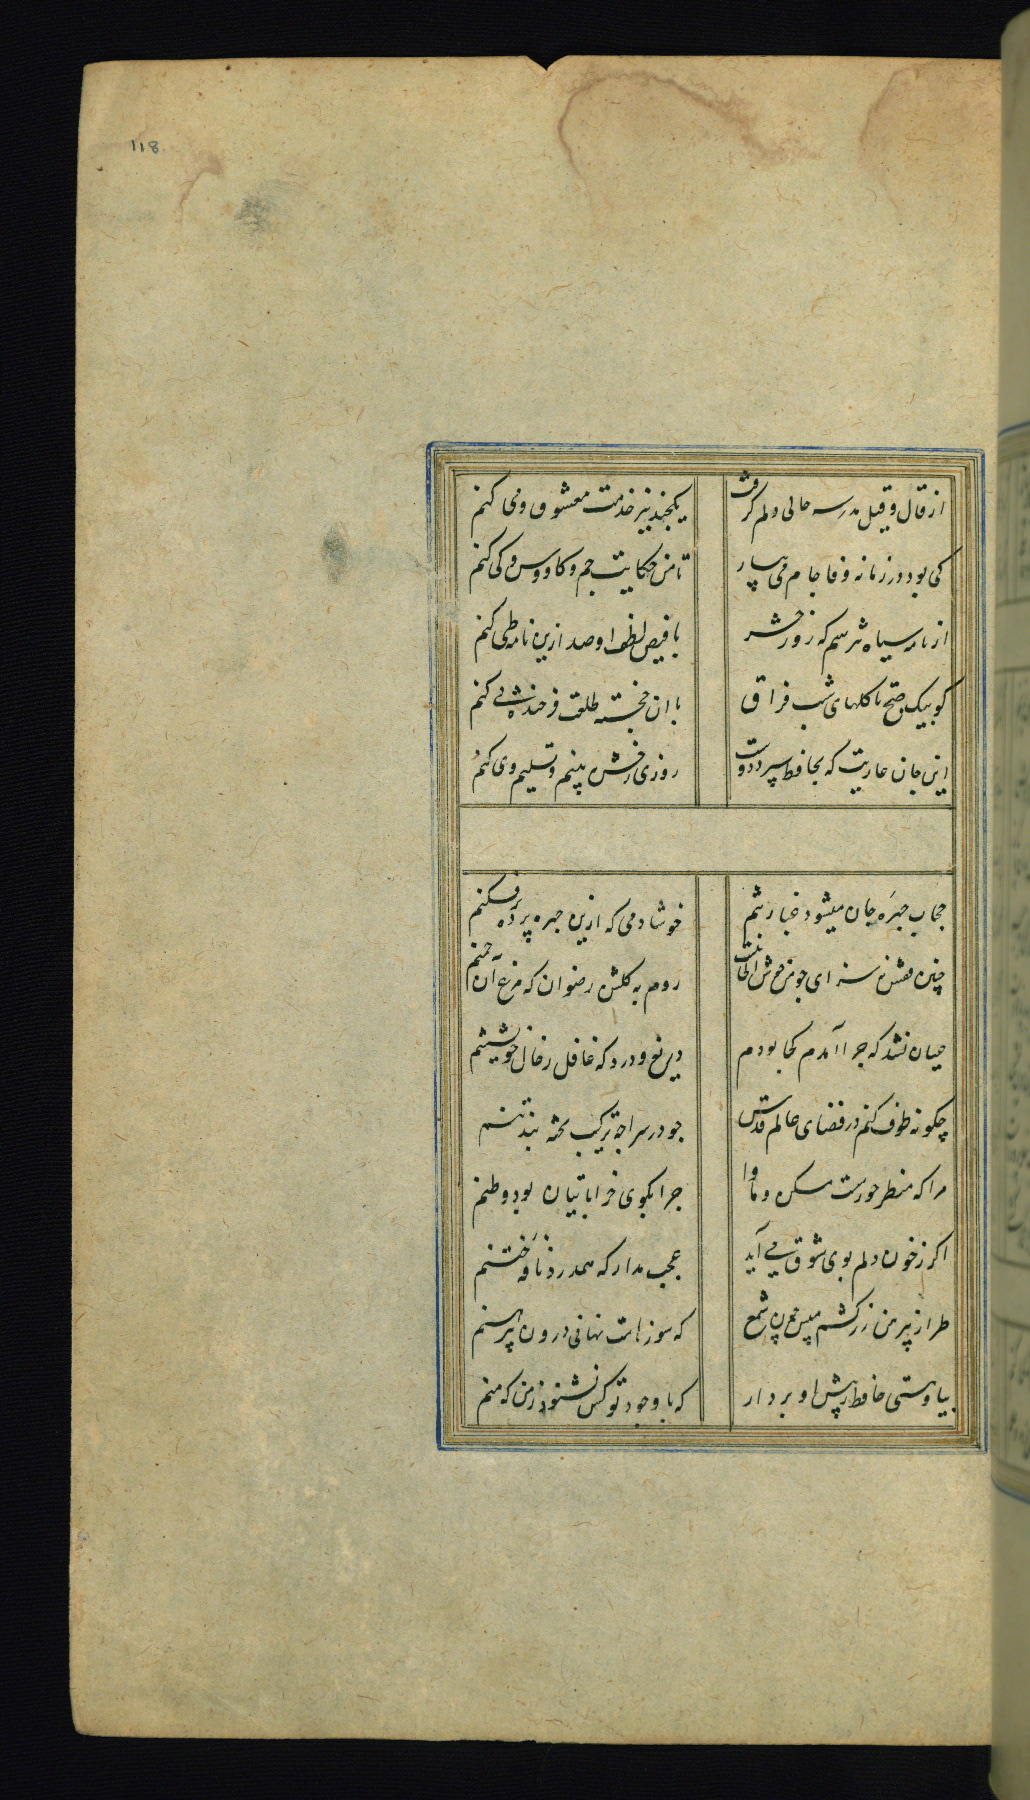 118
از قال و قیل مدرسه حالی دلم گرفت
یکچند نیز خدمت معشوق و می کنم
کی بود در زمانه وفا جام می بیار
تا من حکایت جم و کاووس و کی کنم
از نامه سیاه نترسم که روز حشر
با فیض لطف او صد ازین نامه طی کنم
کو پیک صبح تا کلهای شب فراق
با ان خجسته طلعت فرخنده پی کنم
این جان عاریت که بحافظ سپرد دوست
روزی رخش ببینم و تسلیم وی کنم
حجاب چهره جان میشود غبار تنم
خوشا دمی که ازین چهره پرده برفکنم
چنین قفس نه سزای چو من خوش الحانیست
روم به کلشن رضوان که مرغ آن چمنم
عیان نشد که چرا آمدم کجا بودم
دریغ و درد که غافل ز حال خویشتنم
چکونه طوف کنم در فضای عالم قدس
چو در سراچه ترکیب تخته بند تنم
مرا که منظر حورست مسکن و ماوا
چرا بکوی خراباتیان بود وطنم
اکر ز خون دلم بوی شوق می آید
عجب مدار که همدرد نافه ختنم
طراز پیرهن زرکشم مبین چون شمع
که سوزهاست نهانی درون پیرهنم
بیا و هستی حافظ ز پیش او بردار
که با وجود تو کس نشنود ز من که منم